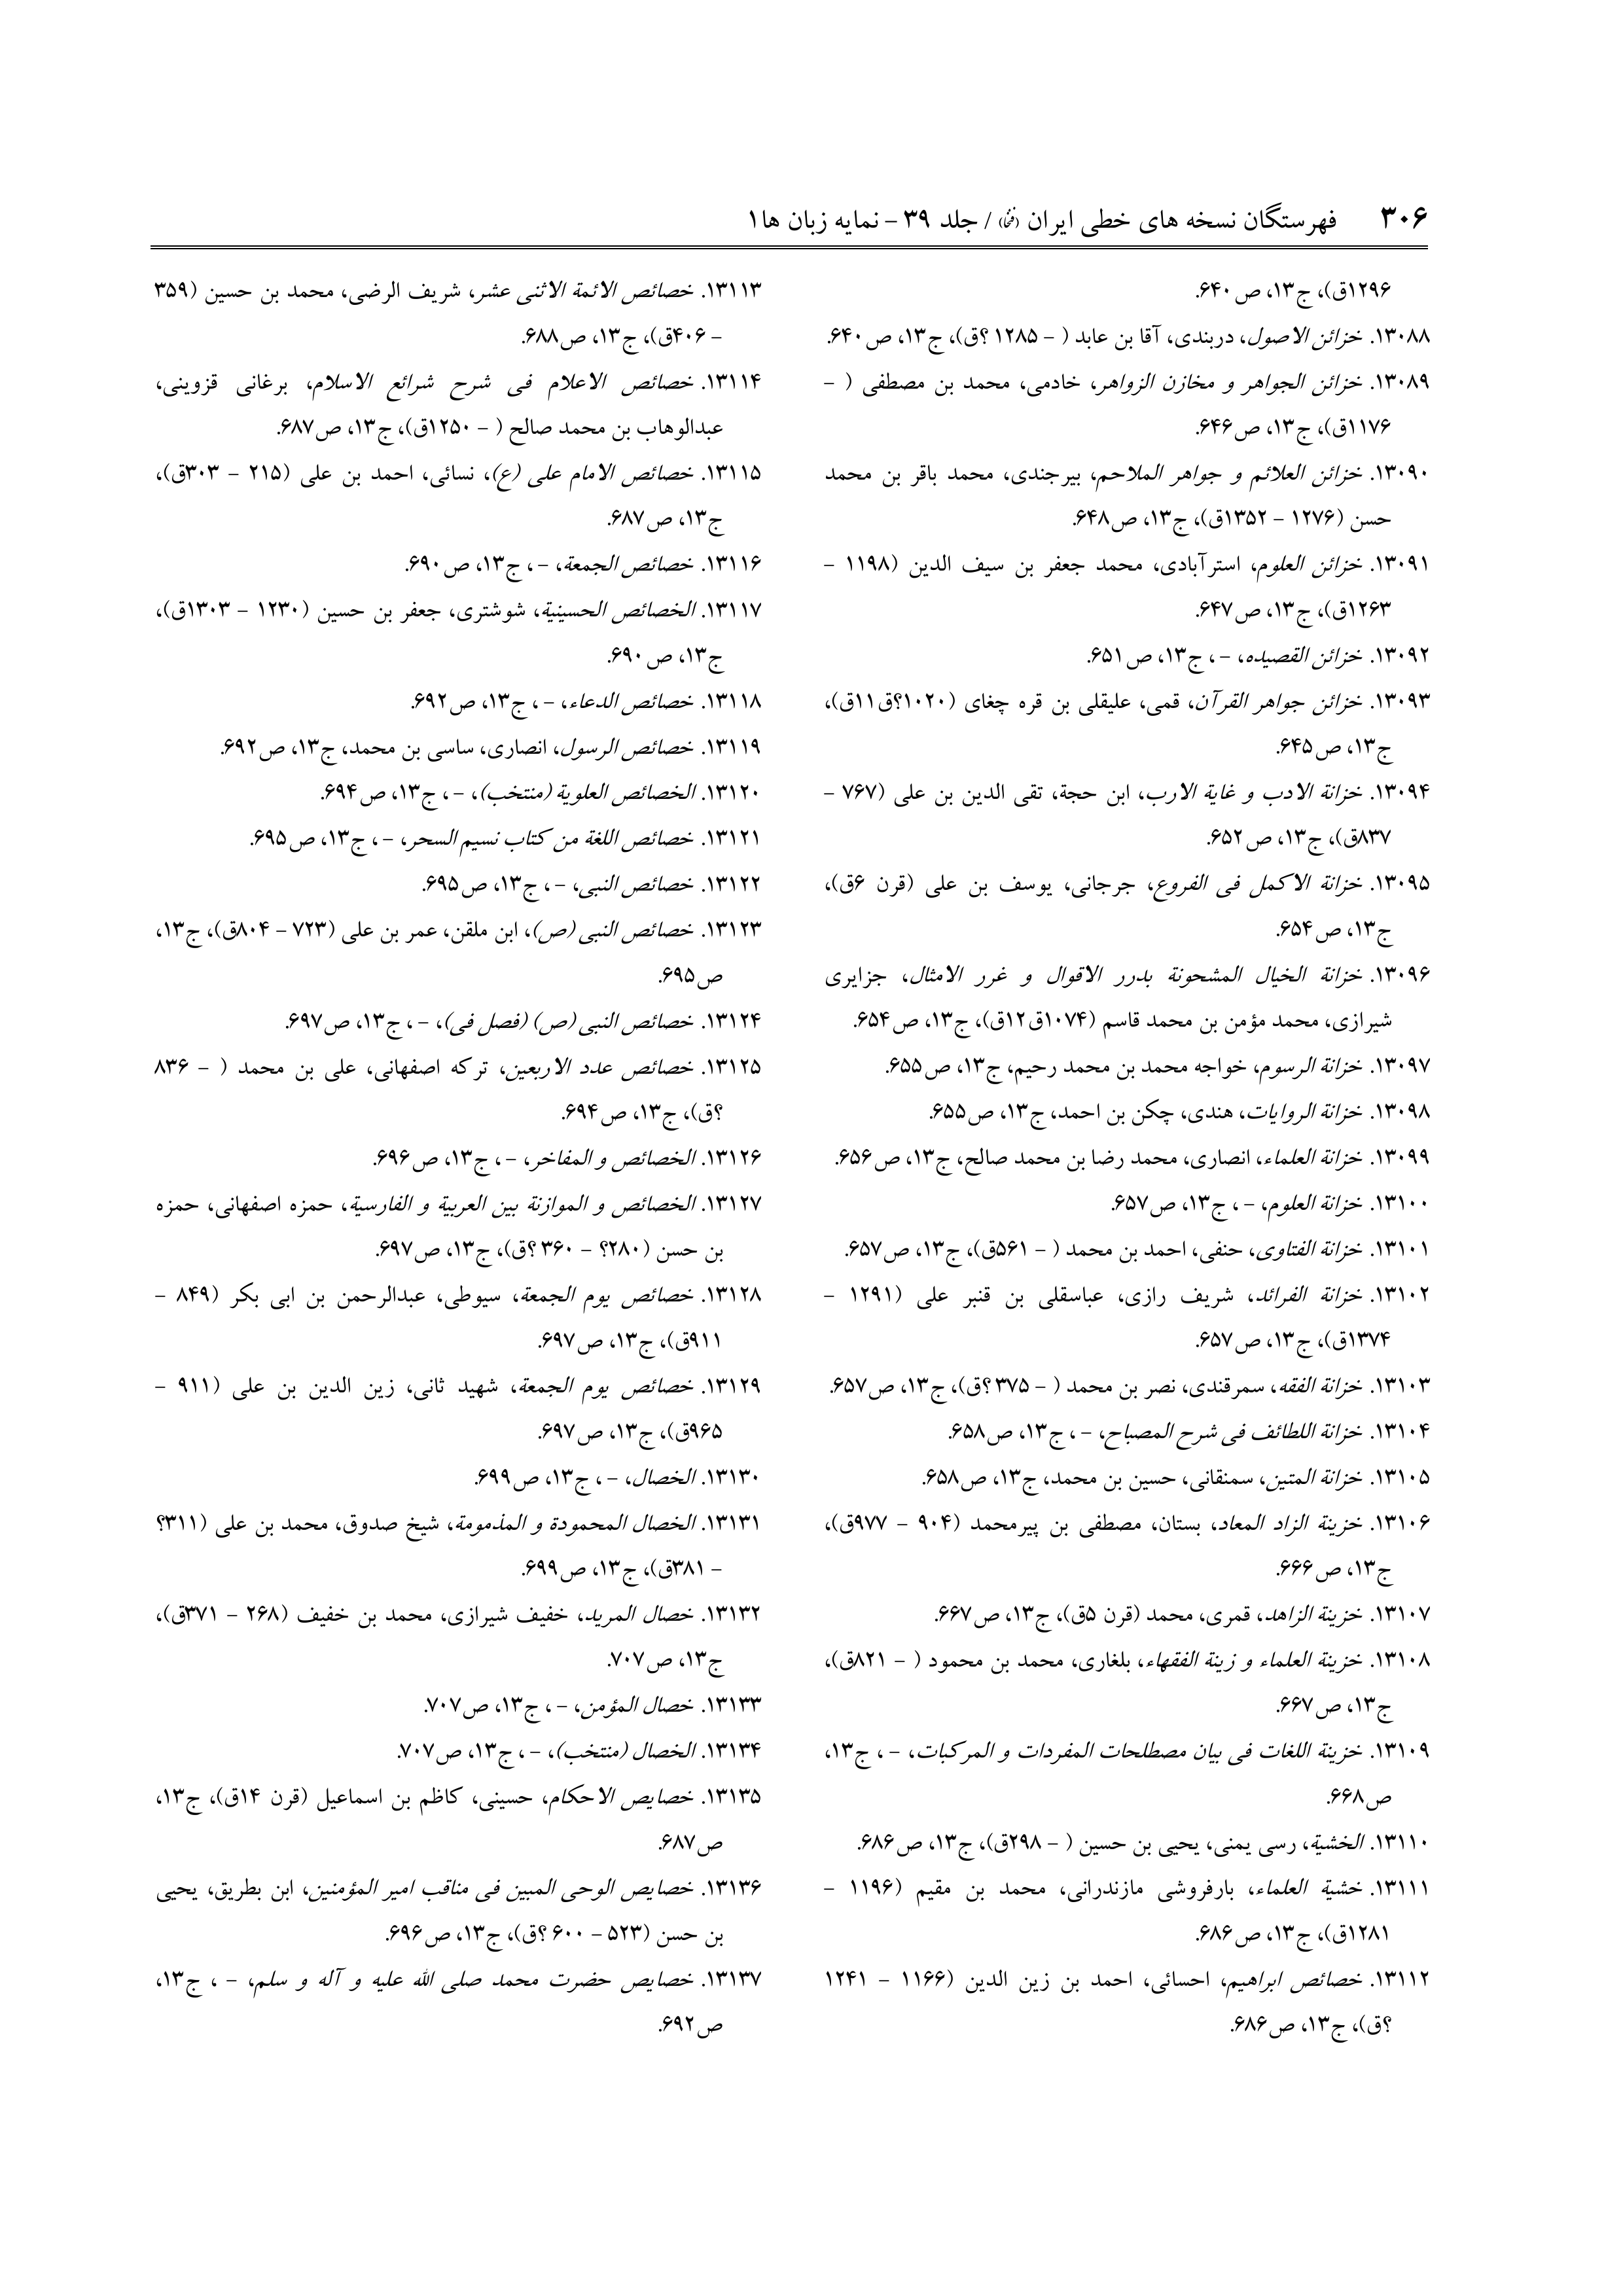 ۳۰۶ فهرستگان نسخه های خطی ایران (فنخا) / جلد ۳۹ - نمایه زبان ها۱
۱۲۹۶ق)، ج۱۳، ص۶۴۰.
۱۳۰۸۸. خزائن الاصول، دربندی، آقا بن عابد ( - ۱۲۸۵ ؟ق)، ج۱۳، ص۶۴۰.
۱۳۰۸۹. خزائن الجواهر و مخازن الزواهر، خادمی، محمد بن مصطفی ( -
۱۱۷۶ق)، ج۱۳، ص۶۴۶.
۱۳۰۹۰. خزائن العلائم و جواهر الملاحم، بیرجندی، محمد باقر بن محمد
حسن (۱۲۷۶ - ۱۳۵۲ق)، ج۱۳، ص۶۴۸.
۱۳۰۹۱. خزائن العلوم، استرآبادی، محمد جعفر بن سیف الدین (۱۱۹۸ -
۱۲۶۳ق)، ج۱۳، ص۶۴۷.
۱۳۰۹۲. خزائن القصیده، -، ج۱۳، ص۶۵۱.
۱۳۰۹۳. خزائن جواهر القرآن، قمی، علیقلی بن قره چغای (۱۰۲۰؟ق۱۱ق)،
ج۱۳، ص۶۴۵.
۱۳۰۹۴. خزانة الادب و غایة الارب، ابن حجة، تقی الدین بن علی (۷۶۷ -
۸۳۷ق)، ج۱۳، ص۶۵۲.
۱۳۰۹۵. خزانة الاکمل فی الفروع، جرجانی، یوسف بن علی (قرن ۶ق)،
ج۱۳، ص۶۵۴.
۱۳۰۹۶. خزانة الخیال المشحونة بدرر الاقوال و غرر الامثال، جزایری
شیرازی، محمد مؤمن بن محمد قاسم (۱۰۷۴ق۱۲ق)، ج۱۳، ص۶۵۴.
۱۳۰۹۷. خزانة الرسوم، خواجه محمد بن محمد رحیم، ج۱۳، ص۶۵۵.
۱۳۰۹۸. خزانة الروایات، هندی، چکن بن احمد، ج۱۳، ص۶۵۵.
۱۳۰۹۹. خزانة العلماء، انصاری، محمد رضا بن محمد صالح، ج۱۳، ص۶۵۶.
۱۳۱۰۰. خزانة العلوم، -، ج۱۳، ص۶۵۷.
۱۳۱۰۱. خزانة الفتاوی، حنفی، احمد بن محمد ( - ۵۶۱ق)، ج۱۳، ص۶۵۷.
۱۳۱۰۲. خزانة الفرائد، شریف رازی، عباسقلی بن قنبر علی (۱۲۹۱ -
۱۳۷۴ق)، ج۱۳، ص۶۵۷.
۱۳۱۰۳. خزانة الفقه، سمرقندی، نصر بن محمد ( - ۳۷۵ ؟ق)، ج۱۳، ص۶۵۷.
۱۳۱۰۴. خزانة اللطائف فی شرح المصباح، -، ج۱۳، ص۶۵۸.
۱۳۱۰۵. خزانة المتین، سمنقانی، حسین بن محمد، ج۱۳، ص۶۵۸.
۱۳۱۰۶. خزینة الزاد المعاد، بستان، مصطفی بن پیرمحمد (۹۰۴ - ۹۷۷ق)،
ج۱۳، ص۶۶۶.
۱۳۱۰۷. خزینة الزاهد، قمری، محمد (قرن ۵ق)، ج۱۳، ص۶۶۷.
۱۳۱۰۸. خزینة العلماء و زینة الفقهاء، بلغاری، محمد بن محمود ( - ۸۲۱ق)،
ج۱۳، ص۶۶۷.
۱۳۱۰۹. خزینة اللغات فی بیان مصطلحات المفردات و المرکبات، -، ج۱۳،
ص۶۶۸.
۱۳۱۱۰. الخشیة، رسی یمنی، یحیی بن حسین ( - ۲۹۸ق)، ج۱۳، ص۶۸۶.
۱۳۱۱۱. خشیة العلماء، بارفروشی مازندرانی، محمد بن مقیم (۱۱۹۶ -
۱۲۸۱ق)، ج۱۳، ص۶۸۶.
۱۳۱۱۲. خصائص ابراهیم، احسائی، احمد بن زین الدین (۱۱۶۶ - ۱۲۴۱
؟ق)، ج۱۳، ص۶۸۶.
۱۳۱۱۳. خصائص الائمة الاثنی عشر، شریف الرضی، محمد بن حسین (۳۵۹
- ۴۰۶ق)، ج۱۳، ص۶۸۸.
۱۳۱۱۴. خصائص الاعلام فی شرح شرائع الاسلام، برغانی قزوینی،
عبدالوهاب بن محمد صالح ( - ۱۲۵۰ق)، ج۱۳، ص۶۸۷.
۱۳۱۱۵. خصائص الامام علی (ع)، نسائی، احمد بن علی (۲۱۵ - ۳۰۳ق)،
ج۱۳، ص۶۸۷.
۱۳۱۱۶. خصائص الجمعة، -، ج۱۳، ص۶۹۰.
۱۳۱۱۷. الخصائص الحسینیة، شوشتری، جعفر بن حسین (۱۲۳۰ - ۱۳۰۳ق)،
ج۱۳، ص۶۹۰.
۱۳۱۱۸. خصائص الدعاء، -، ج۱۳، ص۶۹۲.
۱۳۱۱۹. خصائص الرسول، انصاری، ساسی بن محمد، ج۱۳، ص۶۹۲.
۱۳۱۲۰. الخصائص العلویة (منتخب)، -، ج۱۳، ص۶۹۴.
۱۳۱۲۱. خصائص اللغة من کتاب نسیم السحر، -، ج۱۳، ص۶۹۵.
۱۳۱۲۲. خصائص النبی، -، ج۱۳، ص۶۹۵.
۱۳۱۲۳. خصائص النبی (ص)، ابن ملقن، عمر بن علی (۷۲۳ - ۸۰۴ق)، ج۱۳،
ص۶۹۵.
۱۳۱۲۴. خصائص النبی (ص) (فصل فی)، -، ج۱۳، ص۶۹۷.
۱۳۱۲۵. خصائص عدد الاربعین، ترکه اصفهانی، علی بن محمد ( - ۸۳۶
؟ق)، ج۱۳، ص۶۹۴.
۱۳۱۲۶. الخصائص و المفاخر، -، ج۱۳، ص۶۹۶.
۱۳۱۲۷. الخصائص و الموازنة بین العربیة و الفارسیة، حمزه اصفهانی، حمزه
بن حسن (۲۸۰؟ - ۳۶۰ ؟ق)، ج۱۳، ص۶۹۷.
۱۳۱۲۸. خصائص یوم الجمعة، سیوطی، عبدالرحمن بن ابی بکر (۸۴۹ -
۹۱۱ق)، ج۱۳، ص۶۹۷.
۱۳۱۲۹. خصائص یوم الجمعة، شهید ثانی، زین الدین بن علی (۹۱۱ -
۹۶۵ق)، ج۱۳، ص۶۹۷.
۱۳۱۳۰. الخصال، -، ج۱۳، ص۶۹۹.
۱۳۱۳۱. الخصال المحمودة و المذمومة، شیخ صدوق، محمد بن علی (۳۱۱؟
- ۳۸۱ق)، ج۱۳، ص۶۹۹.
۱۳۱۳۲. خصال المرید، خفیف شیرازی، محمد بن خفیف (۲۶۸ - ۳۷۱ق)،
ج۱۳، ص۷۰۷.
۱۳۱۳۳. خصال المؤمن، -، ج۱۳، ص۷۰۷.
۱۳۱۳۴. الخصال (منتخب)، -، ج۱۳، ص۷۰۷.
۱۳۱۳۵. خصایص الاحکام، حسینی، کاظم بن اسماعیل (قرن ۱۴ق)، ج۱۳،
ص۶۸۷.
۱۳۱۳۶. خصایص الوحی المبین فی مناقب امیر المؤمنین، ابن بطریق، یحیی
بن حسن (۵۲۳ - ۶۰۰ ؟ق)، ج۱۳، ص۶۹۶.
۱۳۱۳۷. خصایص حضرت محمد صلی الله علیه و آله و سلم، -، ج۱۳،
ص۶۹۲.